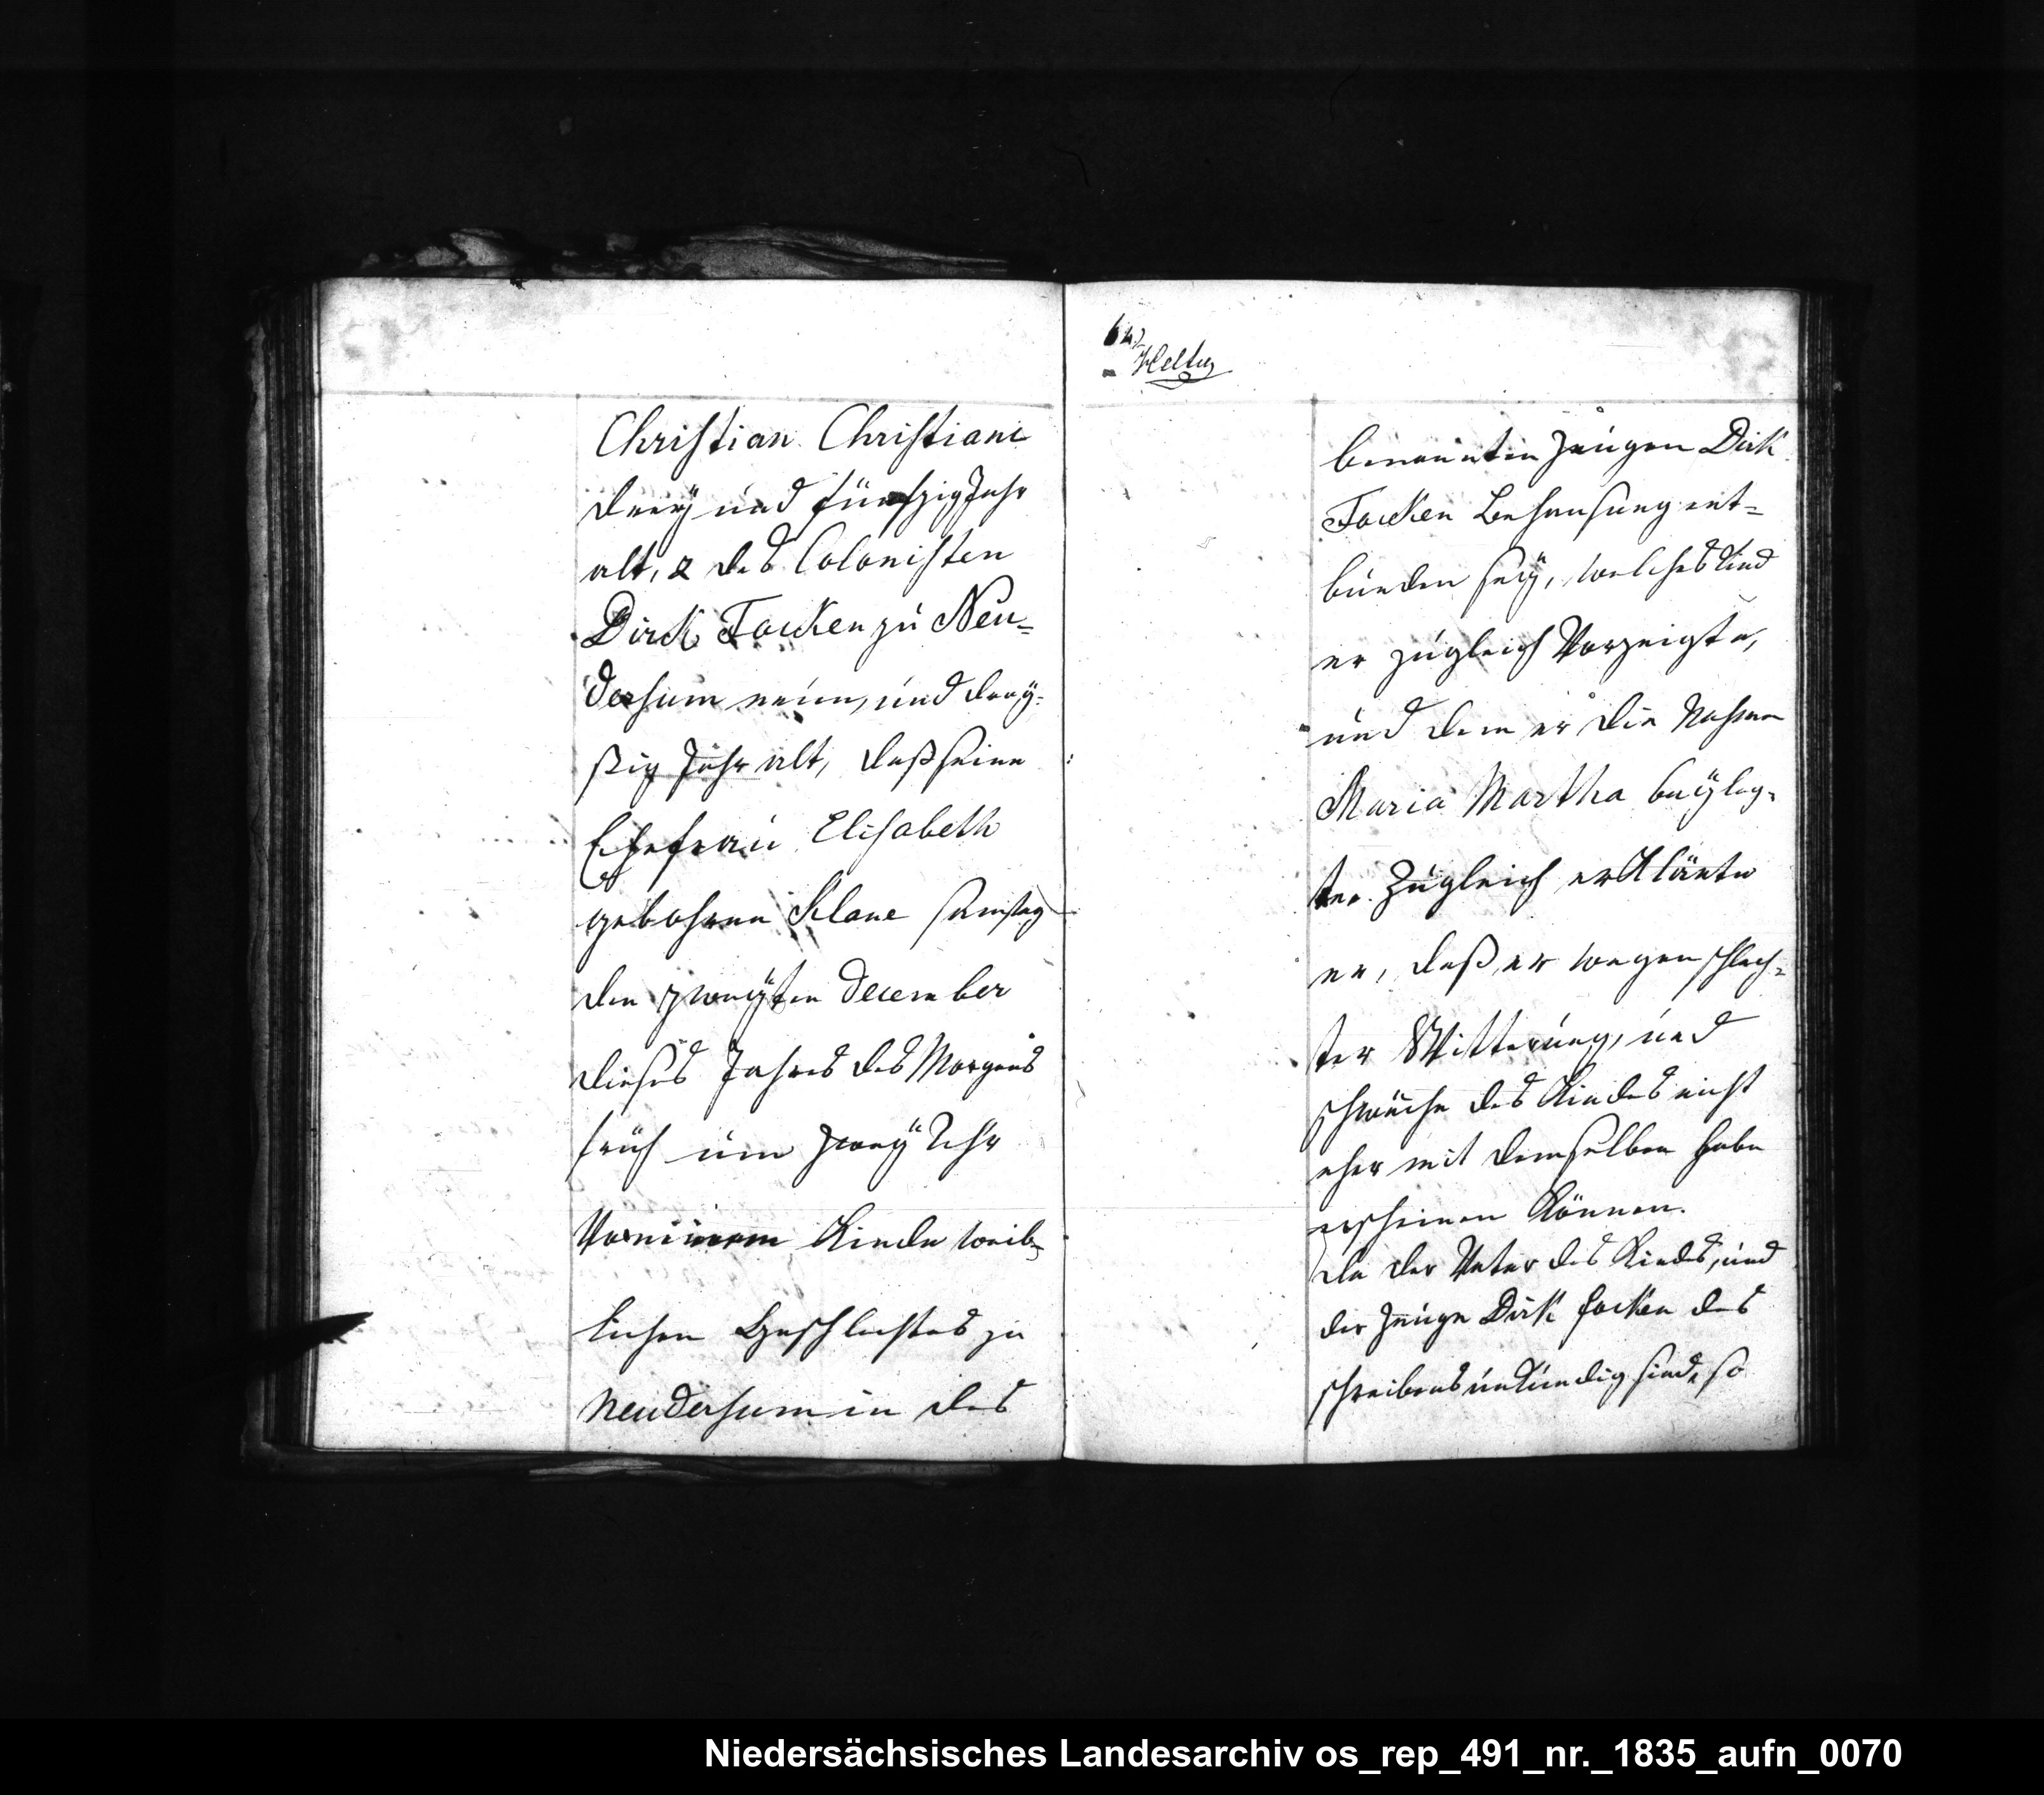 Christian Christiani
dreÿ und fünfzig Jahr
alt, 2 des Colonisten
Dirck Focken zu Neu=
dersum neun, und dreÿ=
ßig Jahr alt, daß seine
Ehefrau Elisabeth
gebohrne Klane samstag
den zweÿten December
dieses Jahres des Morgens
früh um zweÿ Uhr
Von einem Kinde weib=
lichen Geschlechtes zu
Neudersum in des
64
benannten Zeugen Dirk
Focken Behausung ent=
bunden seÿ, welches Kind
er zugleich Vorzeigte,
und dem er die Nahmen
Maria Martha beÿleg=
te. Zugleich erklärte
er, daß er wegen schlech=
ter Witterung, und
schwäche des Kindes nicht
eher mit demselben habe
erscheinen können.
Da der Vater des Kindes, und
der Zeuge Dirk Focken des
schreibens unkundig sind, so
Niedersächsisches Landesarchiv os_rep_491_nr._1835_aufn_0070